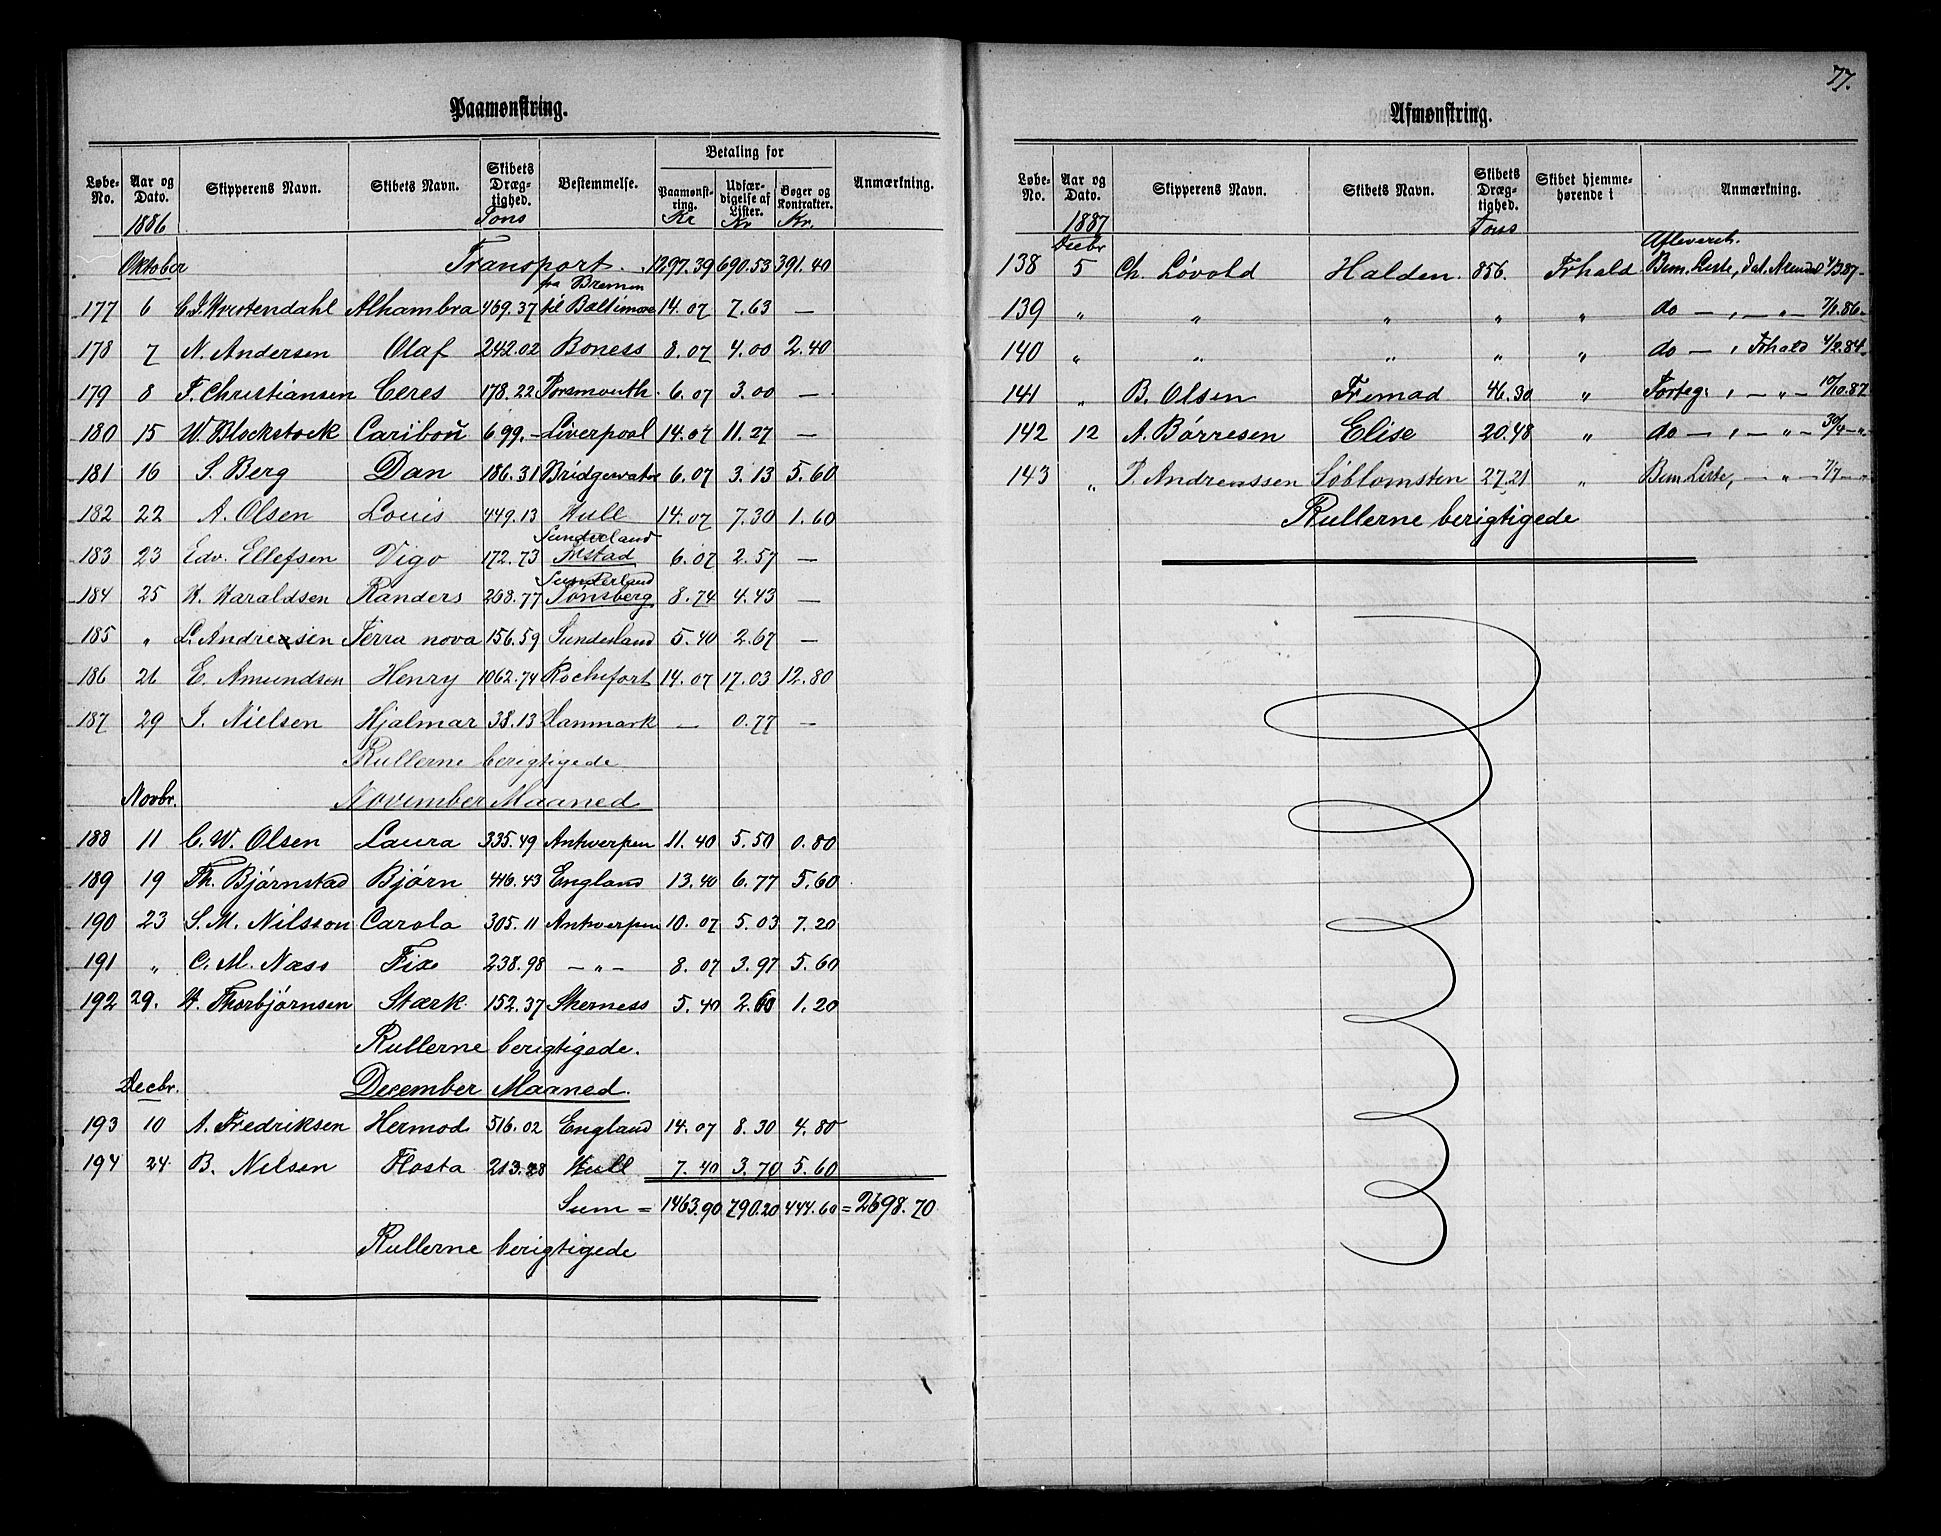 Paamønstring.
Løbe-No. Aar og Dato. Skipperens Navn. Skibets Navn. Skibets Dræg-tighed. Bestemmelse. Betaling for Paamønst-ring. Udfær-digelse af Lister. Bøger og Kontrakter. Anmærkning.
1886 Tons Kr Kr Kr.
Oktober Transport. 1297.39 690.53 391.40
fra Bremen
177 6 Alhambra 469.37 til Baltimore 14.07 7.63 —
178 7 N. Andersen Olaf 242.02 Boness 8.07 4.00 2.40
179 8 F. Christiansen Ceres 178.22 Porsmouth. 6.07 3.00 —
180 15 W. Blockstock Caribou 699.- Liverpool 14.07 11.27 —
181 16 S. Berg Dan 186.31 Bridgewater 6.07 3.13 5.60
182 22 A. Olsen Louis 449.13 Hull 14.07 7.30 1.60
Sunderland
183 23 Edv. Ellefsen Vigo 172.73 6.07 2.57 —
Sunderland
184 25 H. Haraldsen Randers 268.77 Tønsberg 8.74 4.43 —
185 „ L. Andreasen Terra nova 156.59 Sunderland 5.40 2.67 —
186 26 E. Amundsen Henry 1062.74 Rochefort 14.07 17.03 12.80
187 29 J. Nielsen Hjalmar 38.13 Danmark — 0.77 —
Rullerne berigtigede
Novbr. November Maaned
188 11 C. W. Olsen Laura 335.49 Antverpen 11.40 5.50 0.80
189 19 Th. Bjørnstad Bjørn 416.43 England 13.40 6.77 5.60
190 23 S. M. Nilsson Carola 305.11 Antverpen 10.07 5.03 7.20
191 „ C. M. Næss Fix 238.98 — „ — 8.07 3.97 5.60
192 29. H. Thorbjørnsen Stærk 152.37 Sherness 5.40 2.60 1.20
Rullerne berigtigede.
Decbr. December Maaned.
193 10 A. Fredriksen Hermod 516.02 England 14.07 8.30 4.80
194 24 B. Nilsen Flosta 213.28 Hull 7.40 3.70 5.60
Sum = 1463.90 790.20 444.60 = 2698.70
Rullerne berigtigede
77.
Afmønstring.
Løbe-No. Aar og Dato. Skipperens Navn. Skibets Navn. Skibets Dræg-tighed. Skibet hjemme-hørende i Anmærkning.
1887 Tons
Decbr Afleveret.
138 5 Ch. Løvold Halden. 856. Frhald Bem. Liste, dat. Arendal 4/3 87-
139 „ „ „ „ „ do — , — „ — 7/1.86-
140 „ „ „ „ „ do — , Frhald 4/2.84-
141 „ B. Olsen Fremad 46.30 „ Forteg. , — „ — 10/10.87
142 12 A. Børresen Elise 20.48 „ do — , — „ — 30/4 - „ -
143 „ P. Andreassen Søblomsten 27.21 „ Bem. Liste, — „ — 7/7 - „
Rullerne berigtigede